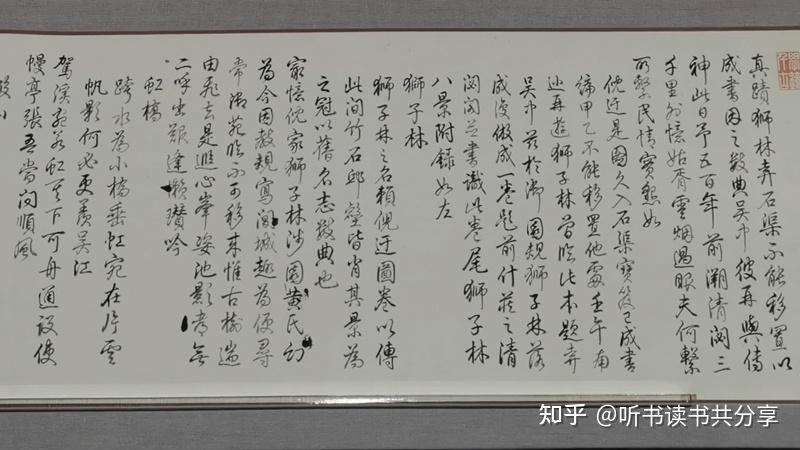 真蹟獅林弆石渠不能移置以
成書因之數典吳中彼再與傳
神此日予五百年前溯清閟三
千里外憶姑胥雲烟過眼夫何繫
所繫民情實懇如
倪迂是圖久入石渠寶笈已成書
締甲乙不能移置他處壬午南
巡再遊獅子林曾臨此本題弆
吳中茲於御園規獅子林落
成復倣成一卷題前什藏之清
閟閣並書識此卷尾獅子林
八景附錄如左
獅子林
獅子林之名賴倪迂圖卷以傳
此間竹石邱壑皆肖其景為
之冠以舊名志數典也
最憶倪家獅子林涉園黄氏幻
為今因教規寫閶城趣為便尋
常御苑臨不可移来惟古樹遄
由飛去是遐心峯姿池影都無
二呼出艱逢懶瓚吟
虹橋
跨水為小橋垂虹宛在片雲
帆影何必更羨吳江
駕溪宛若虹其下可舟通設使
幔亭張吾當問順風
知乎 @听书读书共分享